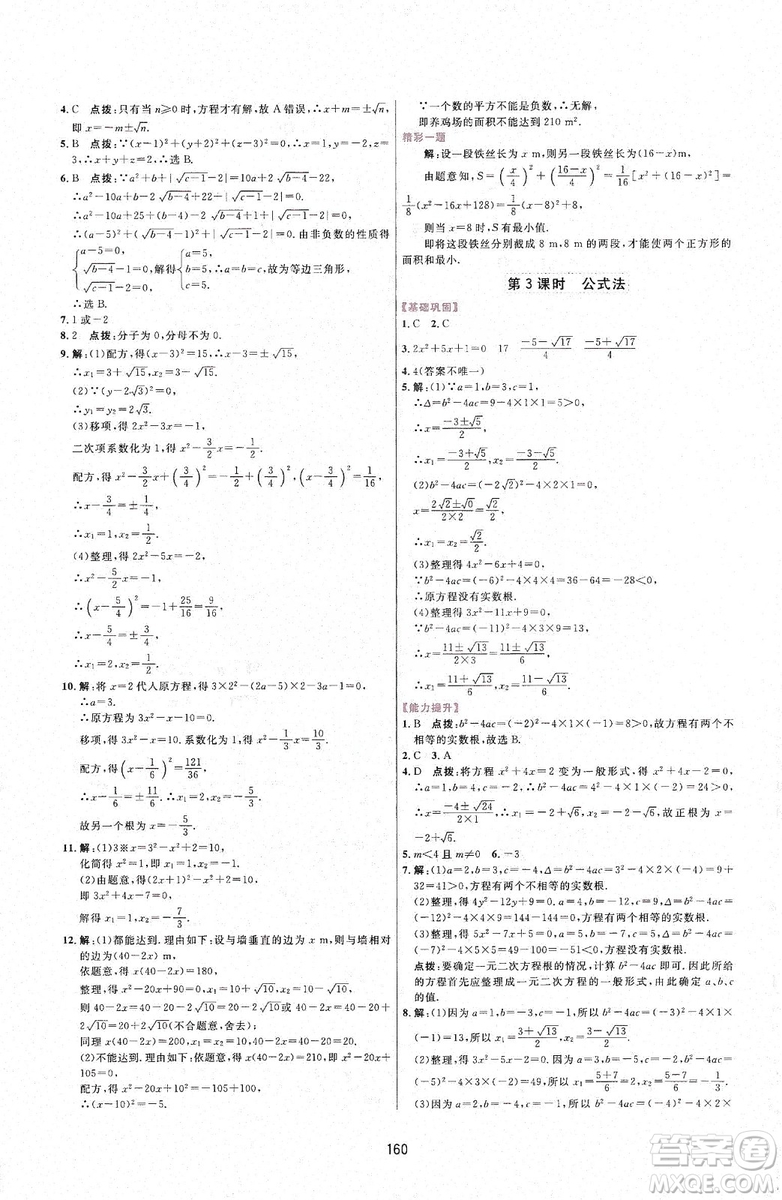 4. C 点拨:只有当 n≥0 时,方程才有解,故 A 错误,∴x+m=±√n,
即 x=-m±√n.
5. B 点拨:∵(x-1)²+(y+2)²+(z-3)²=0,∴x=1,y=-2,z=
3,∴x+y+z=2.∴选 B.
6. B 点拨:∵a²+b+|√(c-1)-2|=10a+2√(b-4)-22,
∴a²-10a+b-2√(b-4)+|√(c-1)-2|+22=0,
∴a²-10a+25+(b-4)-2√(b-4)+1+|√(c-1)-2|=0,
∴(a-5)²+(√(b-4)-1)²+|√(c-1)-2|=0.由非负数的性质得
{a-5=0,
√(b-4)-1=0, 解得 a=b=c=5.故该三角形为等边三角形,
√(c-1)-2=0,
∴选 B.
7. 1 或-2
8. 2 点拨:分子为 0,分母不为 0.
9. 解:(1)配方,得(x-3)²=15,∴x-3=±√15,
∴x₁=3+√15,x₂=3-√15.
(2)∵(y-2)²=0,
∴y₁=y₂=2.
(3)移项,得 2x²-3x=-1,
二次项系数化为 1,得 x²-3/2x=-1/2.
配方,得 x²-3/2x+(3/4)²=-1/2+(3/4)²,(x-3/4)²=1/16,
∴x-3/4=±1/4,
∴x₁=1,x₂=1/2.
(4)整理,得 2x²-5x+2=0,
∴x²-5/2x=-1,
∴(x-5/4)²=-1+25/16=9/16,
∴x-5/4=±3/4,
∴x₁=2,x₂=1/2.
10. 解:将 x=2 代入原方程,得 3×2²-(2a-5)×2-2=0,
∴a=3.
∴原方程为 3x²-x-10=0.
移项,得 3x²-x=10.系数化为 1,得 x²-1/3x=10/3.
配方,得(x-1/6)²=121/36,
∴x-1/6=±11/6,∴x₁=2,x₂=-5/3.
故另一个根为 x=-5/3.
11. 解:(1)3※x=3²-x²=9-x²=0,
化简得 x²=9,即 x₁=3,x₂=-3.
(2)由题意,得(2x+1)²-x²=8,
即 3x²+4x-7=0,
解得 x₁=1,x₂=-7/3.
12. 解:(1)都能达到.理由如下:设与墙垂直的边为 x m,则与墙相对
的边为(40-2x)m,
依题意,得 x(40-2x)=180,
整理,得 x²-20x+90=0,x₁=10+√10,x₂=10-√10,
则 40-2x=40-20-2√10=20-2√10或 40-2x=40-20+
2√10=20+2√10(不合题意,舍去);
同理 x(40-2x)=200,x₁=x₂=10,40-2x=20.
(2)不能达到.理由如下:依题意,得 x(40-2x)=210,即 x²-20x+
105=0,
配方,得 x²-20x+10²=-105+100,
即(x-10)²=-5.
∵一个数的平方不能是负数,∴无解.
即养鸡场的面积不能达到 210 m².
精彩一题
解:设一段铁丝长为 x m,则另一段铁丝长为(16-x)m,
由题意知,S=(x/4)²+((16-x)/4)²=1/16[x²+(16-x)²]=
1/8(x²-16x+128)=1/8(x-8)²+8,
所以当 x=8时,S 有最小值.
即将这段铁丝分别截成 8 m、8 m 的两段,才能使两个正方形的
面积和最小.
第 3 课时 公式法
【基础巩固】
1. C 2. C
3. 2x²+5x+1=0 17 (-5-√17)/4 (-5+√17)/4
4. 4(答案不唯一)
5. 解:(1)∵a=1,b=3,c=1,
∴Δ=b²-4ac=9-4×1×1=5>0,
∴x=(-3±√5)/2,
∴x₁=(-3+√5)/2,x₂=(-3-√5)/2.
(2)b²-4ac=(-2√2)²-4×2×1=0,
x=(2√2±√0)/(2×2)=√2/2,
∴x₁=x₂=√2/2.
(3)整理得 4x²-6x+4=0,
∵b²-4ac=(-6)²-4×4×4=36-64=-28<0,
∴原方程没有实数根.
(4)整理得 3x²-11x+9=0,
∵b²-4ac=(-11)²-4×3×9=13,
∴x=(11±√13)/(2×3)=(11±√13)/6,
∴x₁=(11+√13)/6,x₂=(11-√13)/6.
【能力提升】
1. B 点拨:b²-4ac=2²-4×1×(-1)=8>0,故方程有两个不
相等的实数根,故选 B.
2. C 3. A
4. D 点拨:将方程 x²+4x=2 变为一般形式,得 x²+4x-2=0,
∴a=1,b=4,c=-2,∴b²-4ac=4²-4×1×(-2)=24>0,
∴x=(-4±√24)/(2×1)=-2±√6.∵方程有一个正根,∴正根为 x=
-2+√6.
5. m<4 且 m≠0 6. -3
7. 解:(1)a=2,b=3,c=-4,∴Δ=b²-4ac=3²-4×2×(-4)=9+
32=41>0,∴方程有两个不相等的实数根.
(2)整理,得 4y²-12y+9=0,∴a=4,b=-12,c=9,∴Δ=b²-4ac=
(-12)²-4×4×9=144-144=0,∴方程有两个相等的实数根.
(3)整理,得 5x²-7x+5=0,∴a=5,b=-7,c=5,∴Δ=b²-4ac=
(-7)²-4×5×5=49-100=-51<0,∴方程没有实数根.
点拨:要确定一元二次方程根的情况,计算 b²-4ac 即可,因此所给
的方程首先应整理成一元二次方程的一般形式,由此来确定 a、b、c
的值.
8. 解:(1)因为 a=1,b=-3,c=-1,所以 b²-4ac=(-3)²-4×1×
(-1)=13,所以 x₁=(3+√13)/2,x₂=(3-√13)/2.
(2)整理,得 3x²-5x-2=0.因为 a=3,b=-5,c=-2,所以 b²-4ac
=(-5)²-4×3×(-2)=49,所以 x₁=(5+7)/6=2,x₂=(5-7)/6=-1/3.
(3)因为 a=2,b=-2,c=-1,所以 b²-4ac=(-2)²-4×2×
160
答案圈
MXQE.COM